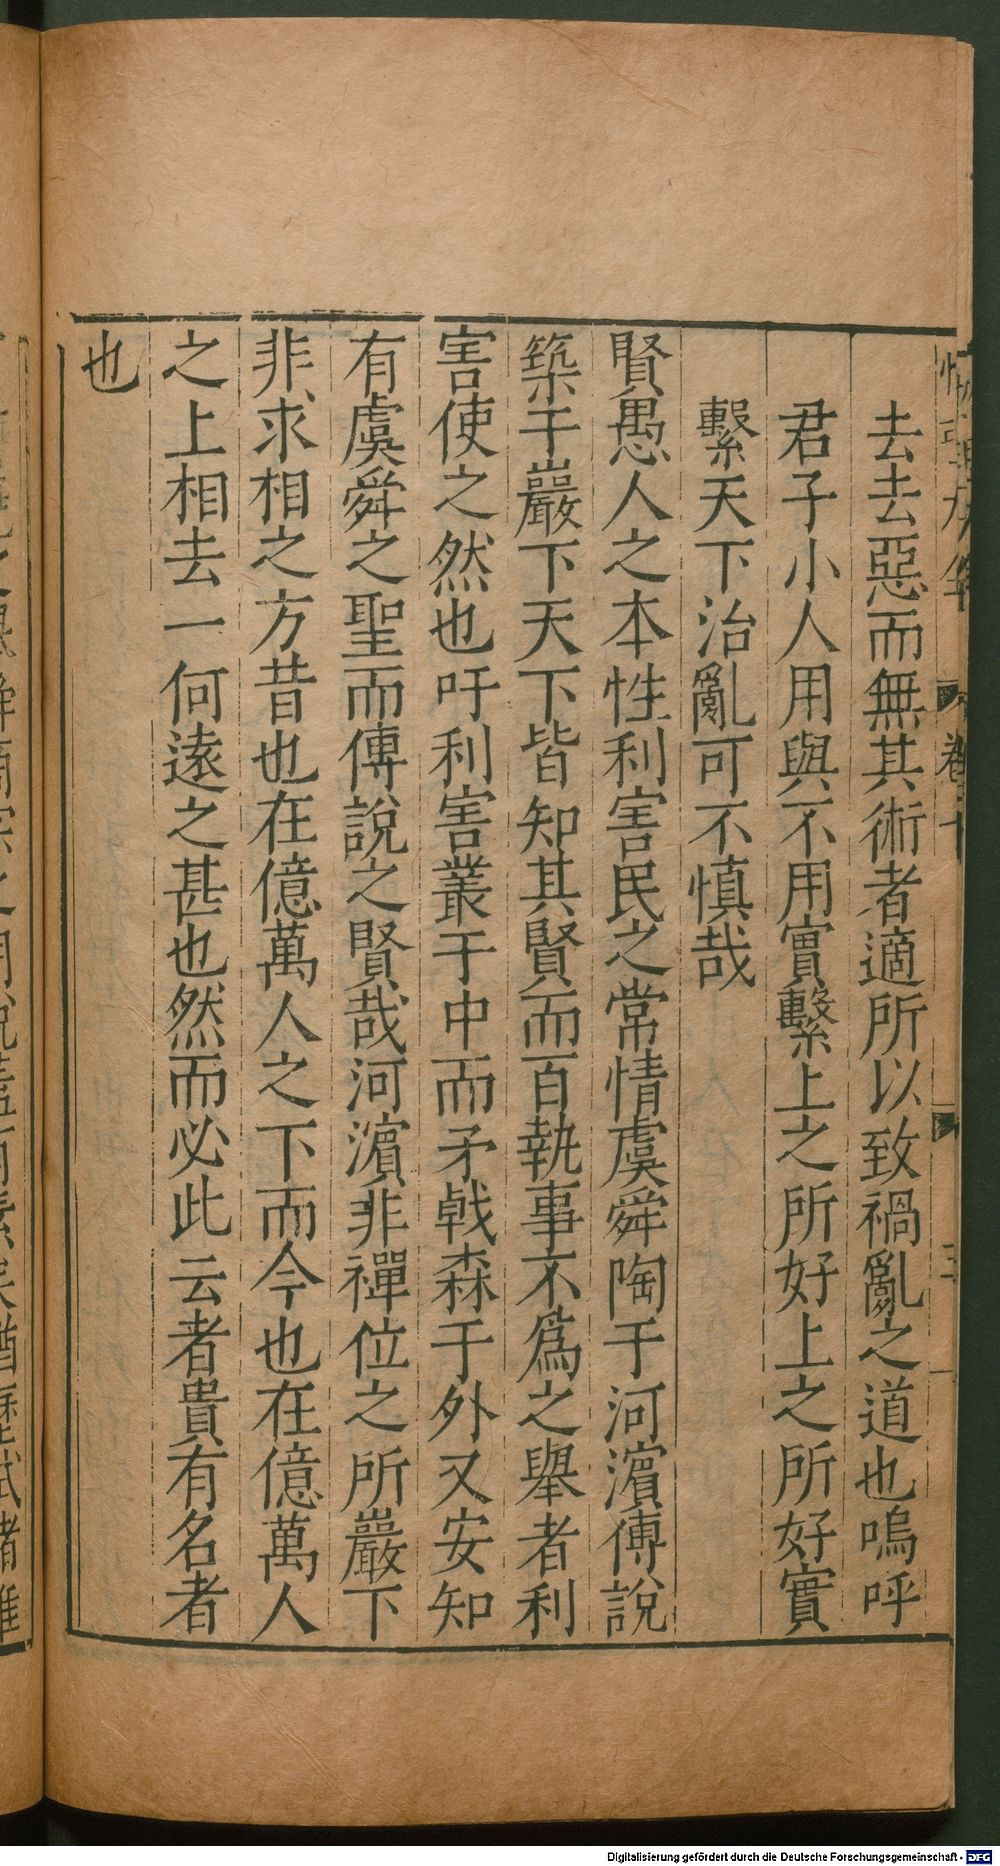 去去惡而無其術者適所以致禍亂之道也嗚呼
君子小人用與不用實繫上之所好上之所好實
繫天下治亂可不慎哉
賢愚人之本性利害民之常情虞舜陶于河濱傅說
築于巖下天下皆知其賢而百執事不爲之舉者利
害使之然也吁利害叢于中而矛戟森于外又安知
有虞舜之聖而傅說之賢哉河濵非禪位之所巖下
非求相之方昔也在億萬人之下而今也在億萬人
之上相去一何遠之甚也然而必此云者貴有名者
也
卷十
三
Digitalisierung gefördert durch die Deutsche Forschungsgemeinschaft - DFG